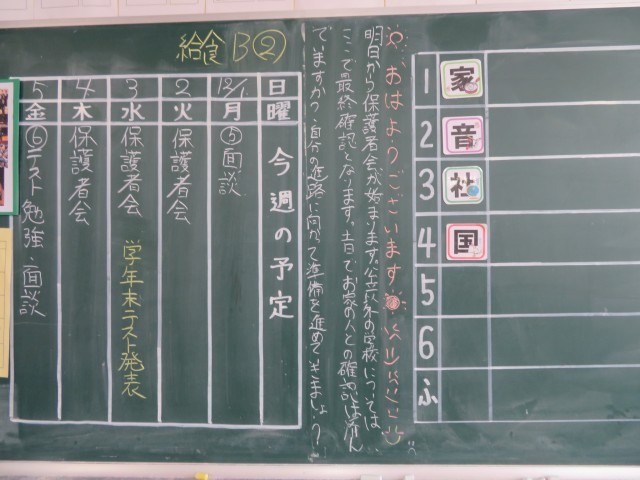 給食 B②
1 家
2 音
3 社
4 国
5
6
ふ
おはようございます
明日から保護者会が始まります。公立以外の学校については
ここで最終確認となります。土日でお家の人との確認は済ん
でますか？自分の進路に向かって準備を進めていきましょう？
今週の予定
日 曜
12/1 月 ⑤面談
2 火 保護者会
3 水 保護者会 学年末テスト発表
4 木 保護者会
5 金 ⑥テスト勉強・面談